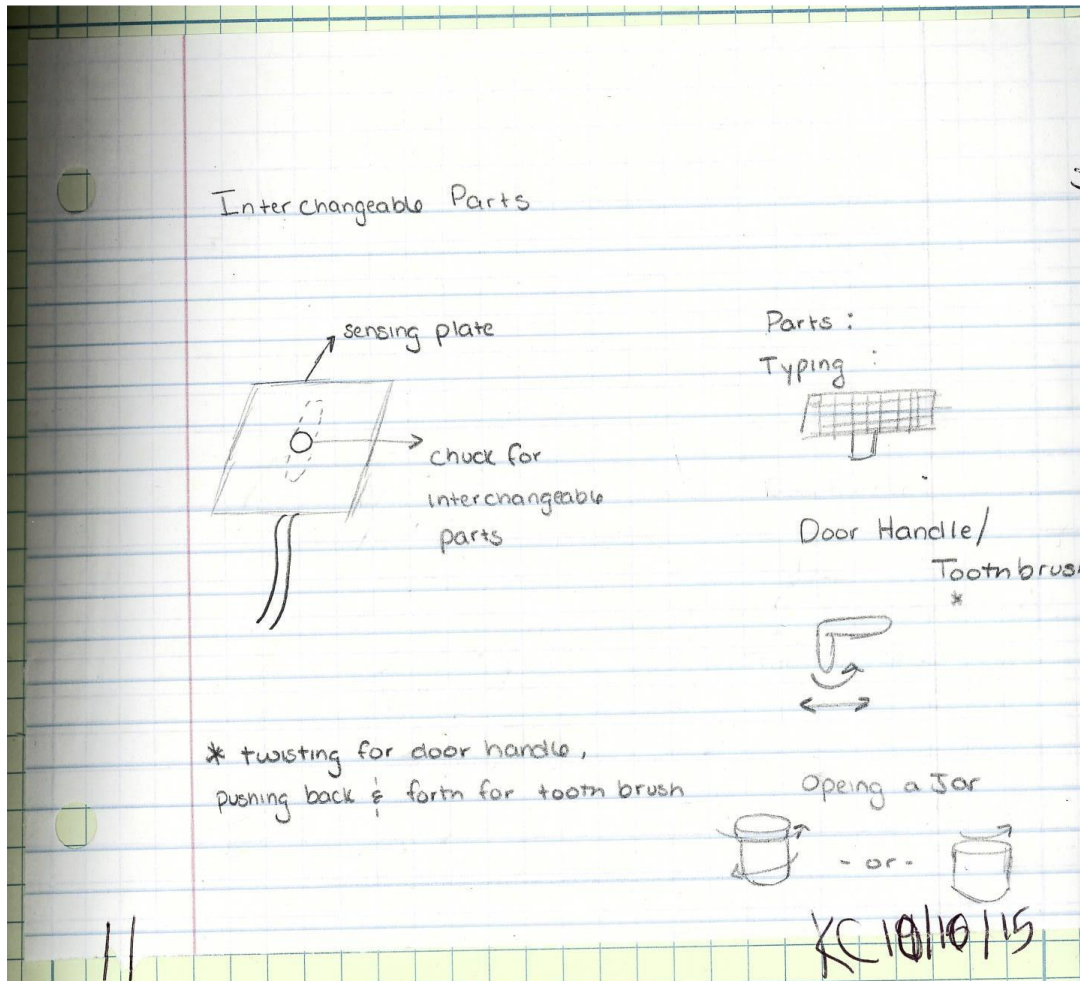 Interchangeable Parts
sensing plate
chuck for
interchangeable
parts
Parts :
Typing :
Door Handle/
Toothbrush
*
* twisting for door handle,
pushing back & forth for tooth brush
Opeing a Jar
- or -
11